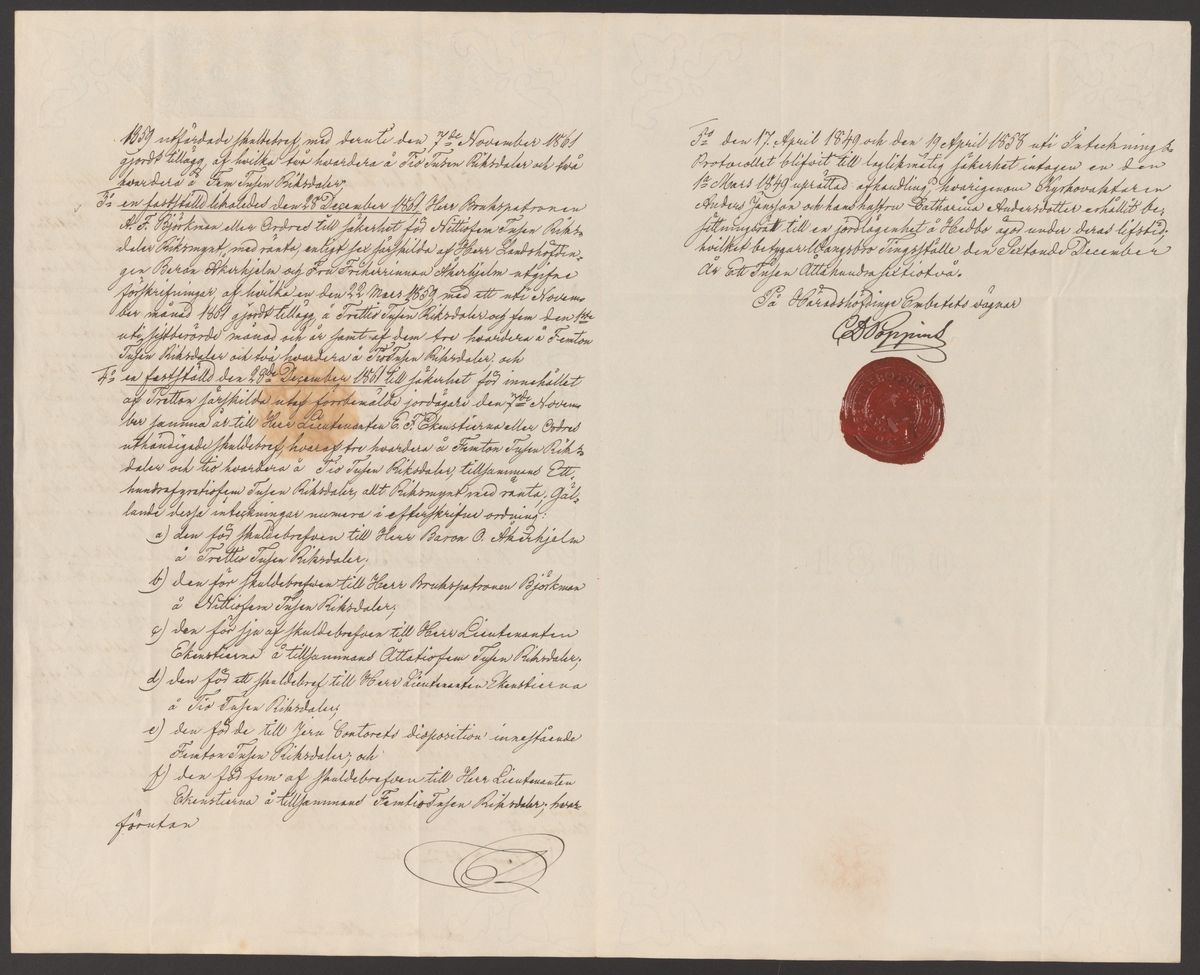 1859 utfärdade skuldebref, med deruti den 7de November 1861
gjordt tillägg, af hvilka två hvardera å Tio Tusen Riksdaler och två
hvardera å Fem Tusen Riksdaler;
en fastställd likaledes den 28de December 1861, Herr Brukspatronen
A. F. Björkman eller Ordres till säkerhet för Nittiofem Tusen Riks-
daler Riksmynt, med ränta, enligt sex särskilda af Herr Landshöfdin-
gen Baron Åkerhjelm och Fru Friherrinnan Åkerhjelm utgifne
förskrifningar, af hvilka en den 22 Mars 1859 med ett uti Novem-
ber månad 1861 gjordt tillägg, å Trettio Tusen Riksdaler och fem den
uti sistberörde månad och år samt af dem tre hvardera å Femton
Tusen Riksdaler och två hvardera å Tio Tusen Riksdaler, och
en fastställd den 28de December 1861 till säkerhet för innehållet
af Tretton särskilda utaf förrbemälde jordägare den 7de Novem-
ber samma år till Herr Lieutenanten C. F. Ekenstierna eller Ordres
uthändigade skuldebref, hvaraf tre hvardera å Femton Tusen Riks-
daler och tio hvardera å Tio Tusen Riksdaler, tillsammans Ett-
hundrafyratiofem Tusen Riksdaler, allt Riksmynt med ränta; Gäl-
lande dessa inteckningar numera i efterskrifne ordning:
a) den för skuldebrefven till Herr Baron O. Åkerhjelm
å Trettio Tusen Riksdaler;
b) den för skuldebrefven till Herr Brukspatronen Björkman
å Nittiofem Tusen Riksdaler;
c) den för sju af skuldebrefven till Herr Lieutenanten
Ekenstierna å tillsammans Åttatiofem Tusen Riksdaler;
d) den för ett skuldebref till Herr Lieutenanten Ekenstierna
å Tio Tusen Riksdaler;
e) den för de till Jern Contorets disposition innestående
Femton Tusen Riksdaler; och
f) den för fem af skuldebrefven till Herr Lieutenanten
Ekenstierna å tillsammans Femtio Tusen Riksdaler; hvar-
förutan
den 17. April 1849 och den 19 April 1858 uti Intecknings-
Protocollet blifvit till laglikmätig säkerhet intagen en den
1ste Mars 1849 upprättad afhandling, hvarigenom Kyrkovaktaren
Anders Jansson och hans hustru Catharina Andersdotter erhållit be-
sittningsrätt till en jordlägenhet å Hedbo ägor under deras lifstid;
hvilket betygar Wångsbro Tingsställe den Sextonde December
År Ett Tusen Åttahundrasextiotvå.
På Häradshöfdinge Embetets vägnar